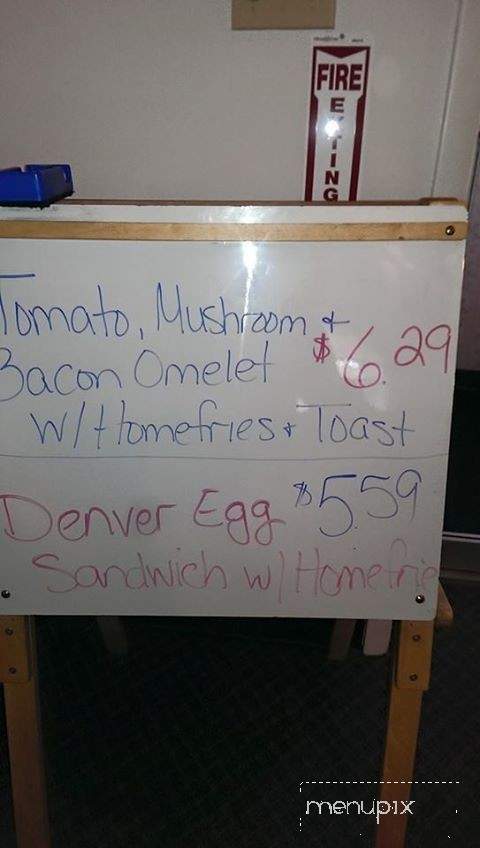 FIRE
EXTING
Tomato, Mushroom +
Bacon Omelet $6.29
W/Homefries + Toast
Denver Egg $5.59
Sandwich w/Homefrie
menupix